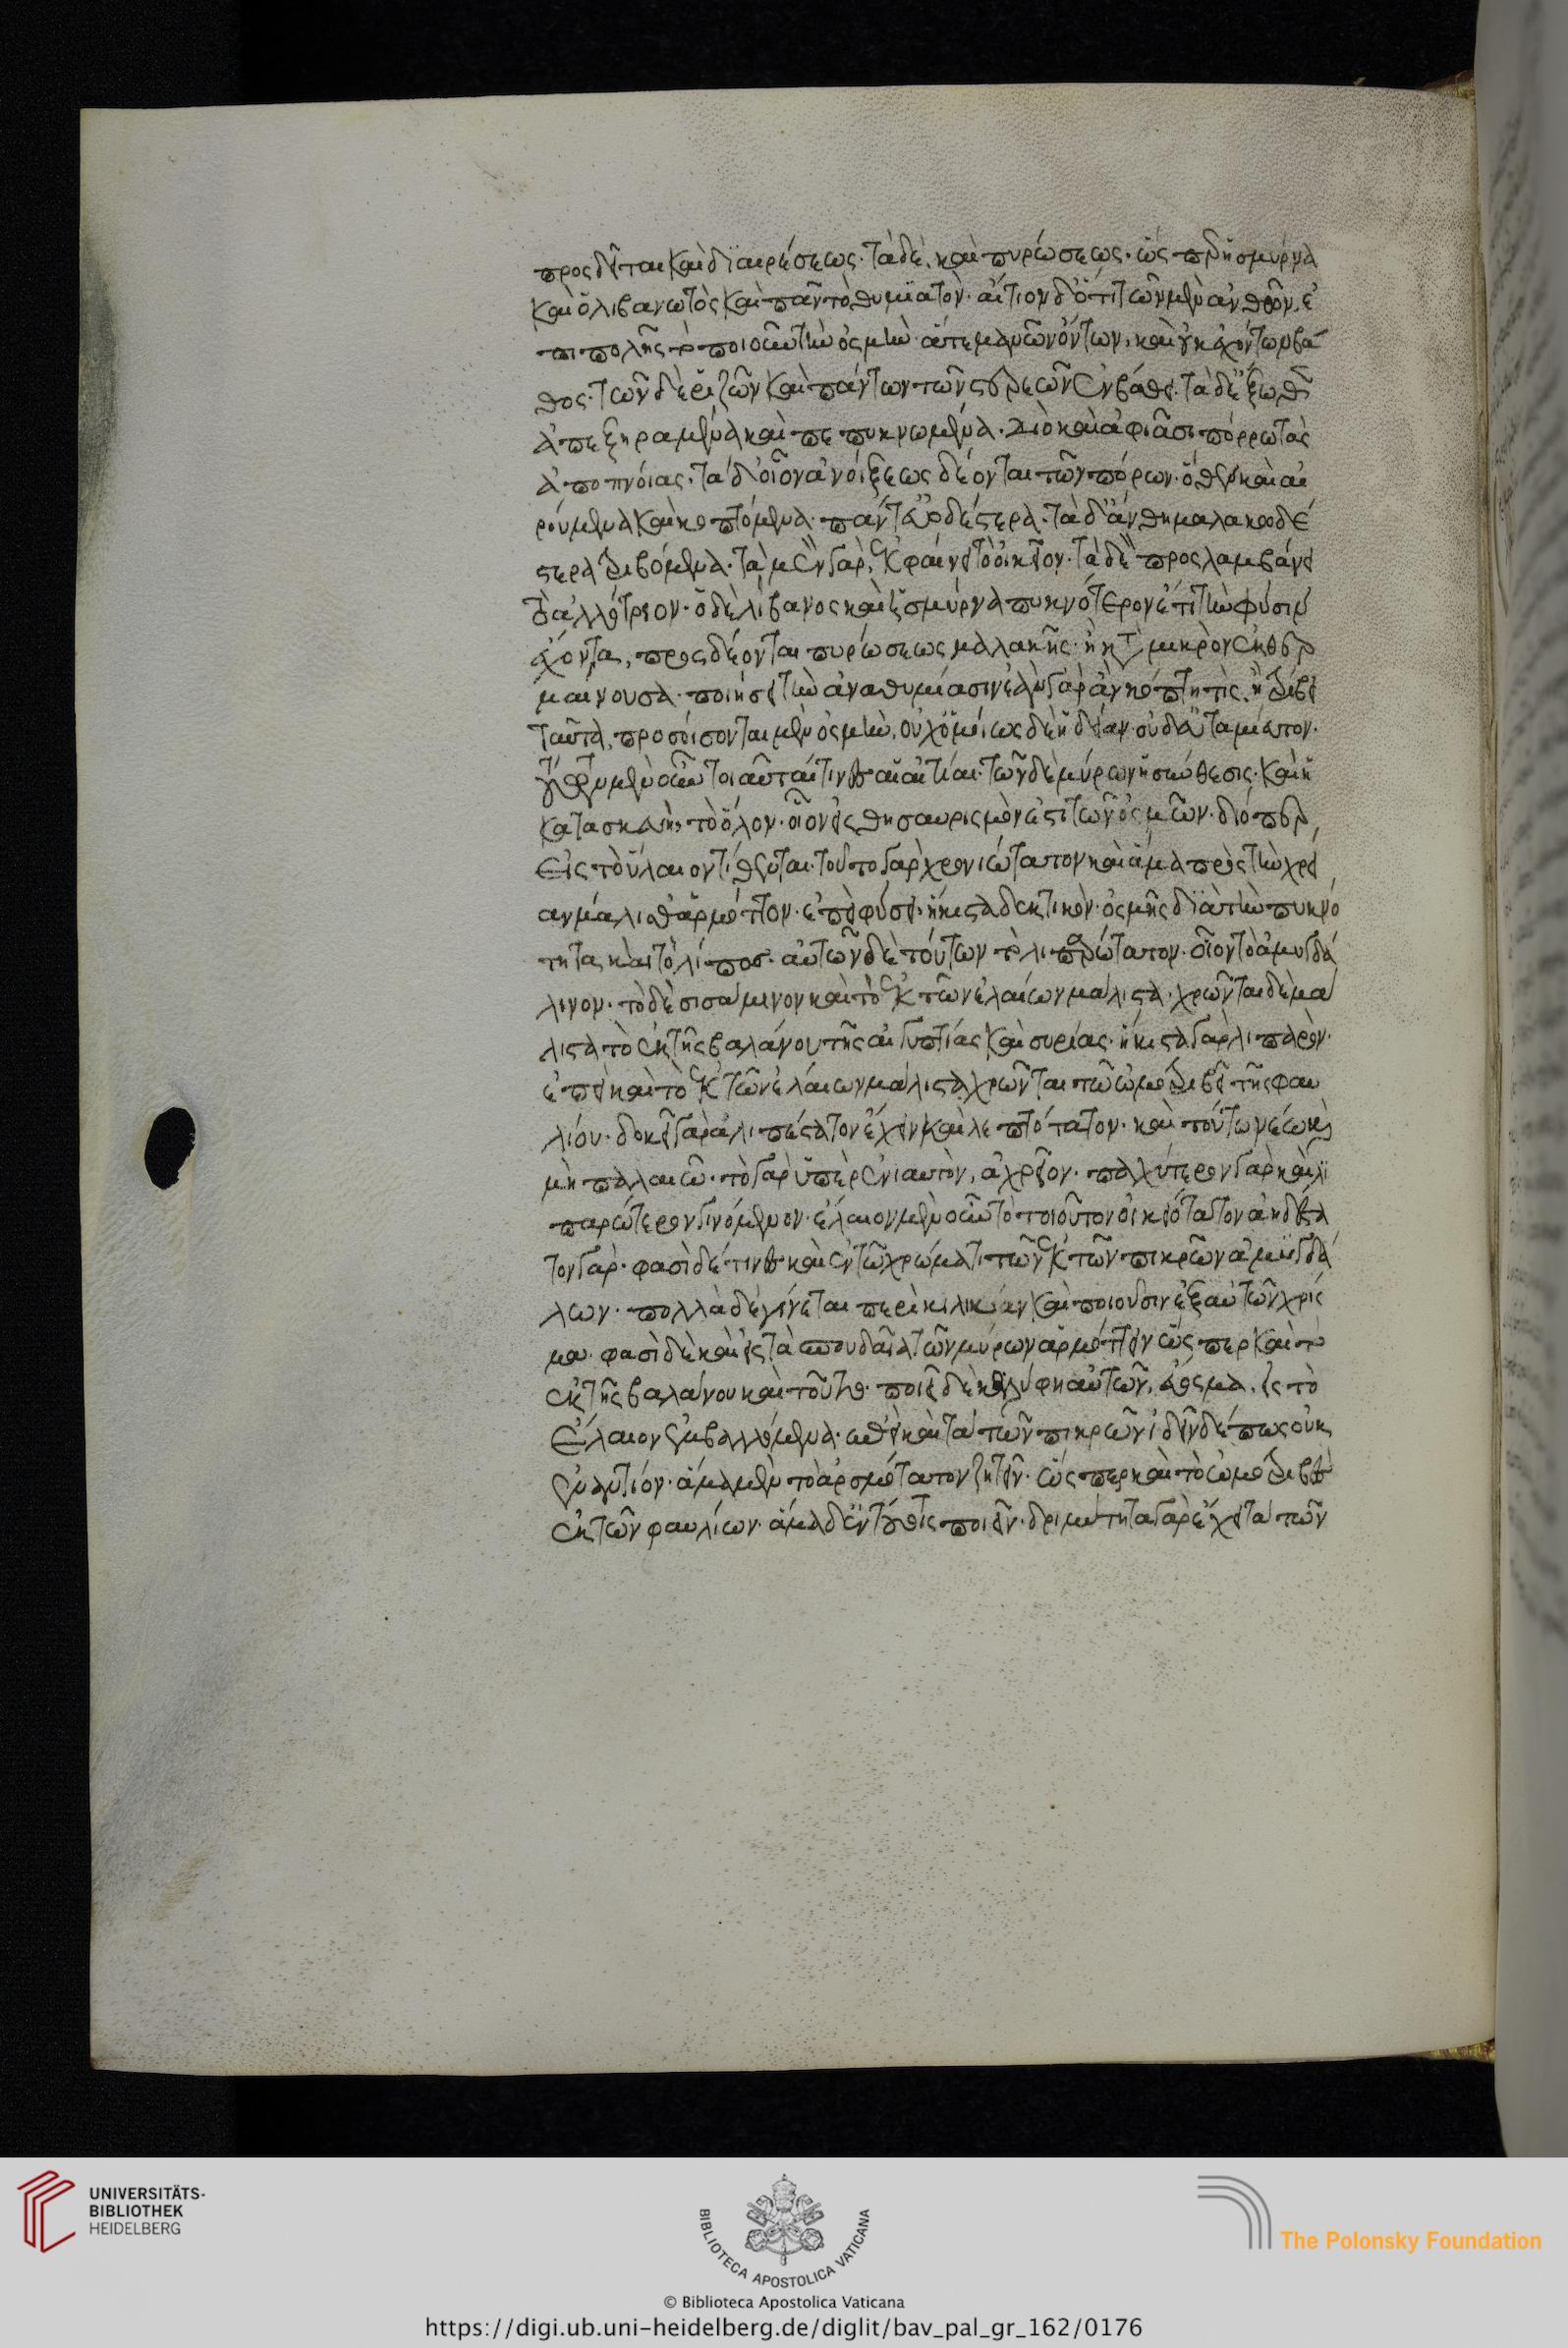 προσδεῖται καὶ διαιρέσεως· τὰ δὲ, καὶ πυρώσεως· ὥσπερ ἡ σμύρνα
καὶ ὁ λιβανωτὸς καὶ πᾶν τὸ θυμιατὸν· αἴτιον δ' ὅτι τῶν μὲν ἀνθῶν, ἐ
πιπολῆς τὸ ποιοῦν τὴν ὀσμὴν ἅτε μανῶν ὄντων, καὶ οὐκ ἐχόντων βά
θος· τῶν δὲ ῥιζῶν καὶ πάντων τῶν στερεῶν ἐν βάθει· τὰ δ' ἔξωθεν
ἀπεξηραμμένα καὶ πεπυκνωμένα· διὸ καὶ ἀφιᾶσι πόρρω τὰς
ἀποπνόιας· τὰ δ' οἷον ἀνοίξεως δέονται τῶν πόρων· ὅθεν καὶ αἱ
ρούμενα καὶ κοπτόμενα· πάντα εὐωδέστερα· τὰ δ' ἄνθη μαλακωδέ
στερα τριβόμενα· τὰ μὲν γὰρ, ἐκφαίνει τὸ οἰκεῖον· τὰ δὲ προσλαμβάνει
τὸ ἀλλότριον· ὁ δὲ λίβανος καὶ ἡ σμύρνα πυκνότερον ἔτι τὴν φύσιν
ἔχοντα, προσδέονται πυρώσεως μαλακῆς· ἣ κατὰ μικρὸν ἐκθερ
μαίνουσα· ποιήσει τὴν ἀναθυμίασιν ἐὰν γὰρ ἂν κόπτη τις, ἢ τρίβει
ταῦτα, προσοίσονται μὲν ὀσμὴν, οὐχ ὁμοίως δὲ ἡδεῖαν οὐδὲ ταμίαπον·
τούτων μὲν οὖν τοιαῦται τινὲς αἱ αἰτίαι· τῶν δὲ μύρων ἡ σύνθεσις· καὶ ἡ
κατασκευὴ, τὸ ὅλον· οἷον εἰς θησαυρισμόν ἐστι τῶν ὀσμῶν· διόπερ,
εἰς τοὔλαιον τίθενται· τοῦτο γὰρ χρονιώτατον καὶ ἅμα πρὸς τὴν χρεί
αν μάλιστ' ἁρμόττον· ἐπεὶ φύσει· ἥκιστα δεκτικὸν· ὀσμῆς διὰ τὴν πυκνό
τητα καὶ τὸ λίπος· αὐτῶν δὲ τούτων τὸ λιπαρώτατον· οἷον τὸ ἀμυγδά
λινον· τὸ δὲ σισάμινον καὶ τὸ ἐκ τῶν ἐλαίων μάλιστα· χρῶνται δὲ μά
λιστα τὸ ἐκ τῆς βαλάνου τῆς αἰγυπτίας καὶ συρίας· ἥκιστα γὰρ λιπαρὸν·
ἐπεὶ καὶ τὸ ἐκ τῶν ἐλαίων μάλιστα χρῶνται τῶ ὠμοτριβεῖ τῆς φαυ
λίου· δοκεῖ γὰρ ἀλιπέστατον ἔχειν καὶ λεπτότατον· καὶ τούτω νέω καὶ
μὴ παλαιῶ· τὸ γὰρ ὑπὲρ ἐνιαυτὸν, ἀχρεῖον· παχύτερον γὰρ καὶ λι
παρώτερον γινόμενον· ἔλαιον μὲν οὖν τὸ τοιοῦτον οἰκειότατον ἀηδέστα
τον γὰρ· φασὶ δέ τινες καὶ ἐν τῶ χρώματι τῶν ἐκ τῶν πικρῶν ἀμυγδά
λων· πολλὰ δὲ γίνεται περὶ κιλικίαν καὶ ποιοῦσιν ἐξ αὐτῶν χρίς
μα· φασὶ δὲ καὶ εἰς τὰ σπουδαῖα τῶν μύρων ἁρμόττειν ὥσπερ καὶ τὸ
ἐκ τῆς βαλάνου καὶ τοῦτο· ποιεῖ δὲ κελύφη αὐτῶν, εὔοσμα, εἰς τὸ
ἔλαιον ἐμβαλλόμενα· καὶ τὰ τῶν πικρῶν ἰδεῖν δέ πως οὐκ
ἐναντίον· ἅμα μὲν τὸ ἀοσμότατον ζητεῖν· ὥσπερ καὶ τὸ ὠμοτριβὲς
ἐκ τῶν φαυλίων· ἅμα δ' ἐν τούτοις ποιεῖν· δριμύτητα γὰρ ἔχει τὰ τῶν
UNIVERSITÄTS-
BIBLIOTHEK
HEIDELBERG
BIBLIOTECA APOSTOLICA VATICANA
The Polonsky Foundation
© Biblioteca Apostolica Vaticana
https://digi.ub.uni-heidelberg.de/diglit/bav_pal_gr_162/0176